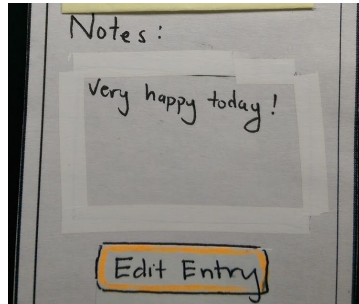 Notes:
Very happy today!
Edit Entry